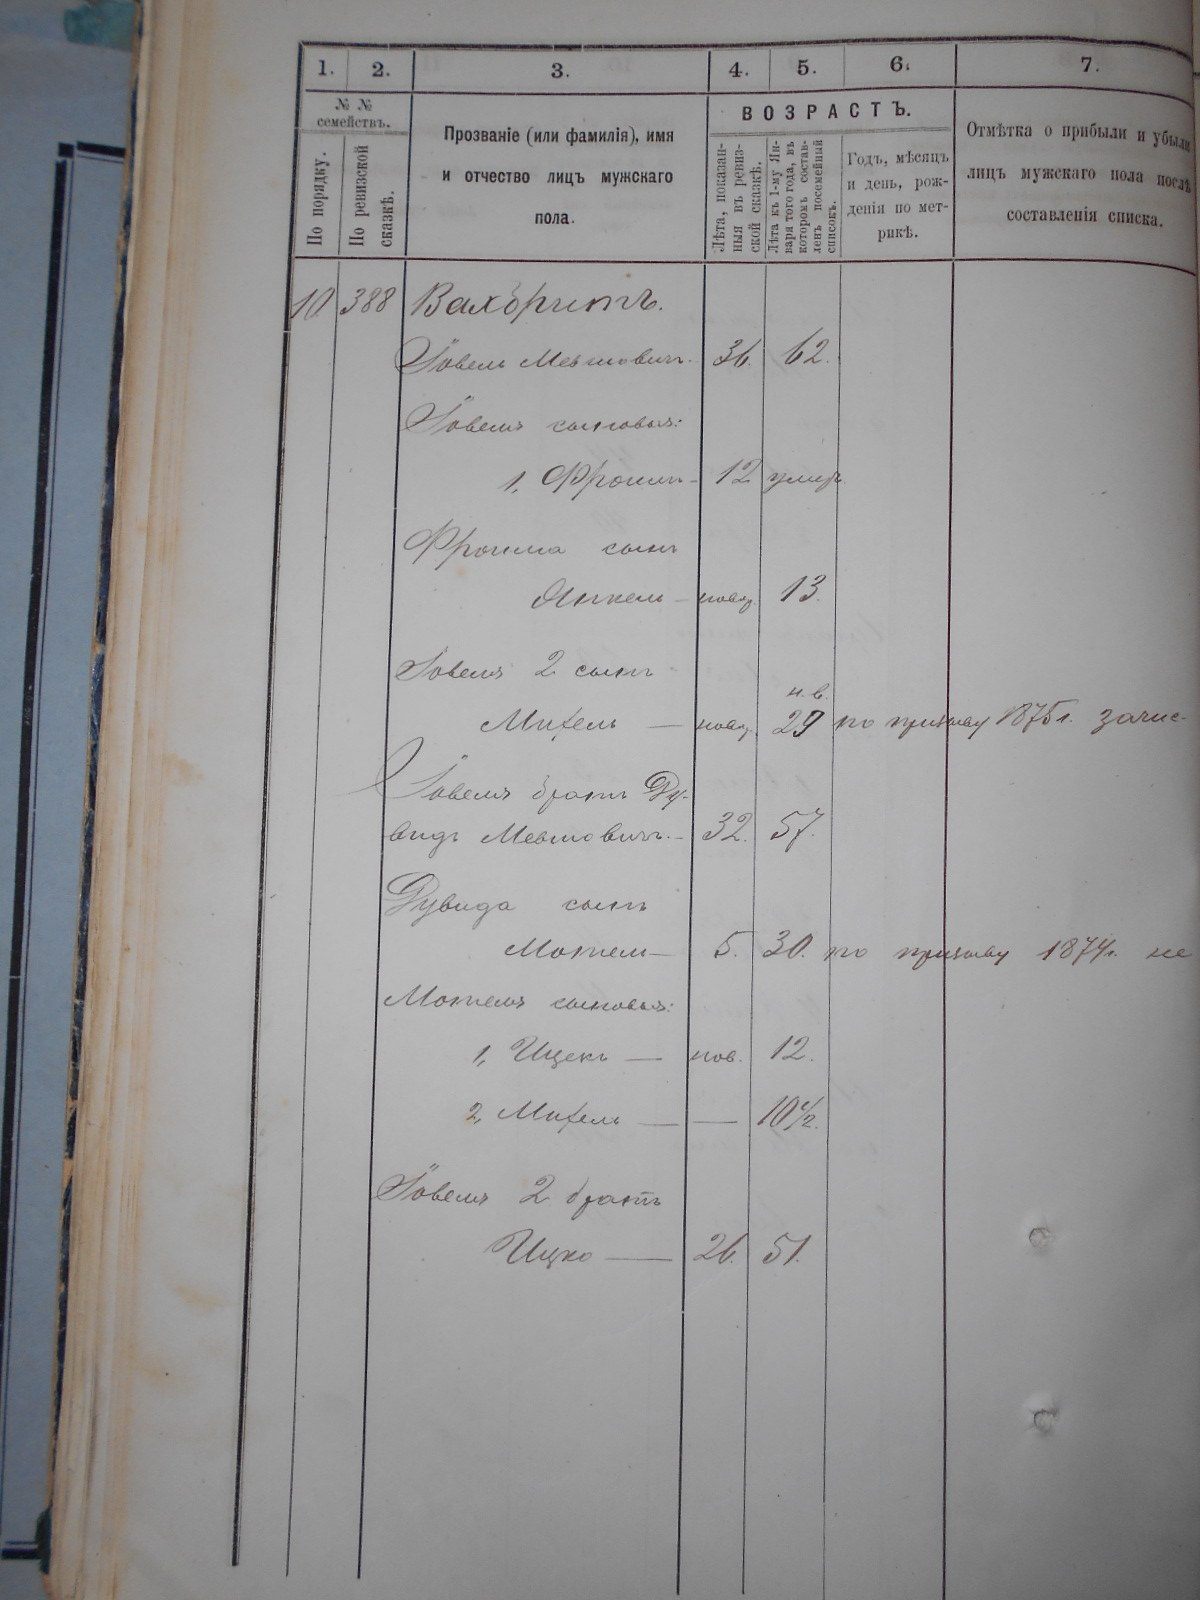 1. 2. 3. 4. 5. 6. 7.
№ № семействъ.
По порядку.
По ревизской сказкѣ.
Прозваніе (или фамилія), имя
и отчество лицъ мужскаго
пола.
ВОЗРАСТЪ.
Лѣта, показан-
ныя въ ревиз-
ской сказкѣ.
Лѣта къ 1-му Ян-
варя того года, въ
которомъ состав-
ленъ посемейный
списокъ.
Годъ, мѣсяцъ
и день, рож-
денія по мет-
рикѣ.
Отмѣтка о прибыли и убыли
лицъ мужскаго пола послѣ
составленія списка.
10. 388
Іовель 36. 62.
Іовеля сыновья:
1, Фроимъ – 12 умер.
Фроима сынъ
Янкель – новор. 13.
Іовеля 2 сынъ
н. в.
— новор. 29 по призыву 1875 г. зачис-
Іовеля братъ Ду-
видъ – 32. 57.
Дувида сынъ
Мотель – 5. 30. по призыву 1874 г. не
Мотеля сыновья:
1, Ицекъ — нов. 12.
2, — — 10 1/2.
Іовеля 2 братъ
Ицко — 26. 51.